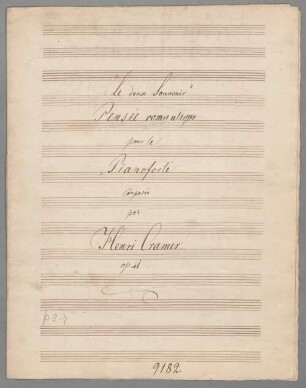 "Le doux Souvenir"
Pensée romantique
pour le
Pianoforte
composée
par
Henri Cramer
op 41
p 2-7
9182